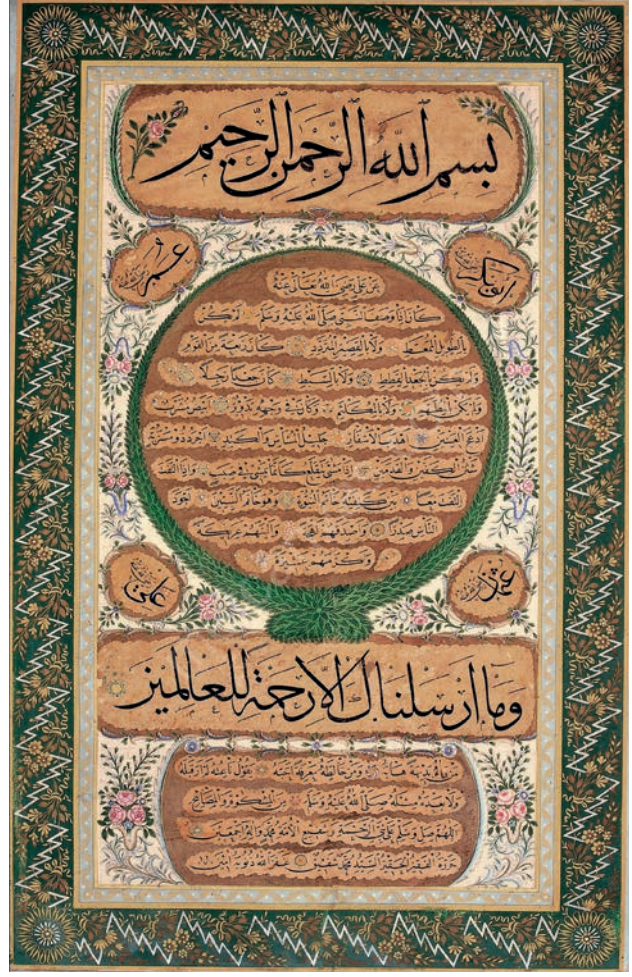 بسم الله الرحمن الرحيم
ابوبكر
عمر
عن علي رضي الله تعالى عنه
كان اذا وصف النبي صلى الله عليه وسلم لم يكن
بالطويل الممغط ولا بالقصير المتردد كان ربعة من القوم
ولم يكن بالجعد القطط ولا بالسبط كان جعدا رجلا
ولم يكن بالمطهم ولا بالمكلثم وكان في وجهه تدوير ابيض مشرب
ادعج العينين اهدب الاشفار جليل المشاش والكتد اجرد ذو مسربة
شثن الكفين والقدمين اذا مشى تقلع كانما يمشي في صبب واذا التفت
التفت معا بين كتفيه خاتم النبوة وهو خاتم النبيين اجود
الناس صدرا واصدقهم لهجة والينهم عريكة
واكرمهم عشيرة
عثمان
علي
وما ارسلناك الا رحمة للعالمين
من رآه بديهة هابه ومن خالطه معرفة احبه يقول ناعته لم ار قبله
ولا بعده مثله صلى الله عليه وسلم من المشكوة والمصابيح
اللهم صل وسلم على نبي الرحمة وشفيع الامة محمد وآله اجمعين
حرره الفقير الحقير السيد محمد شفيق غفر الله ذنوبه آمين